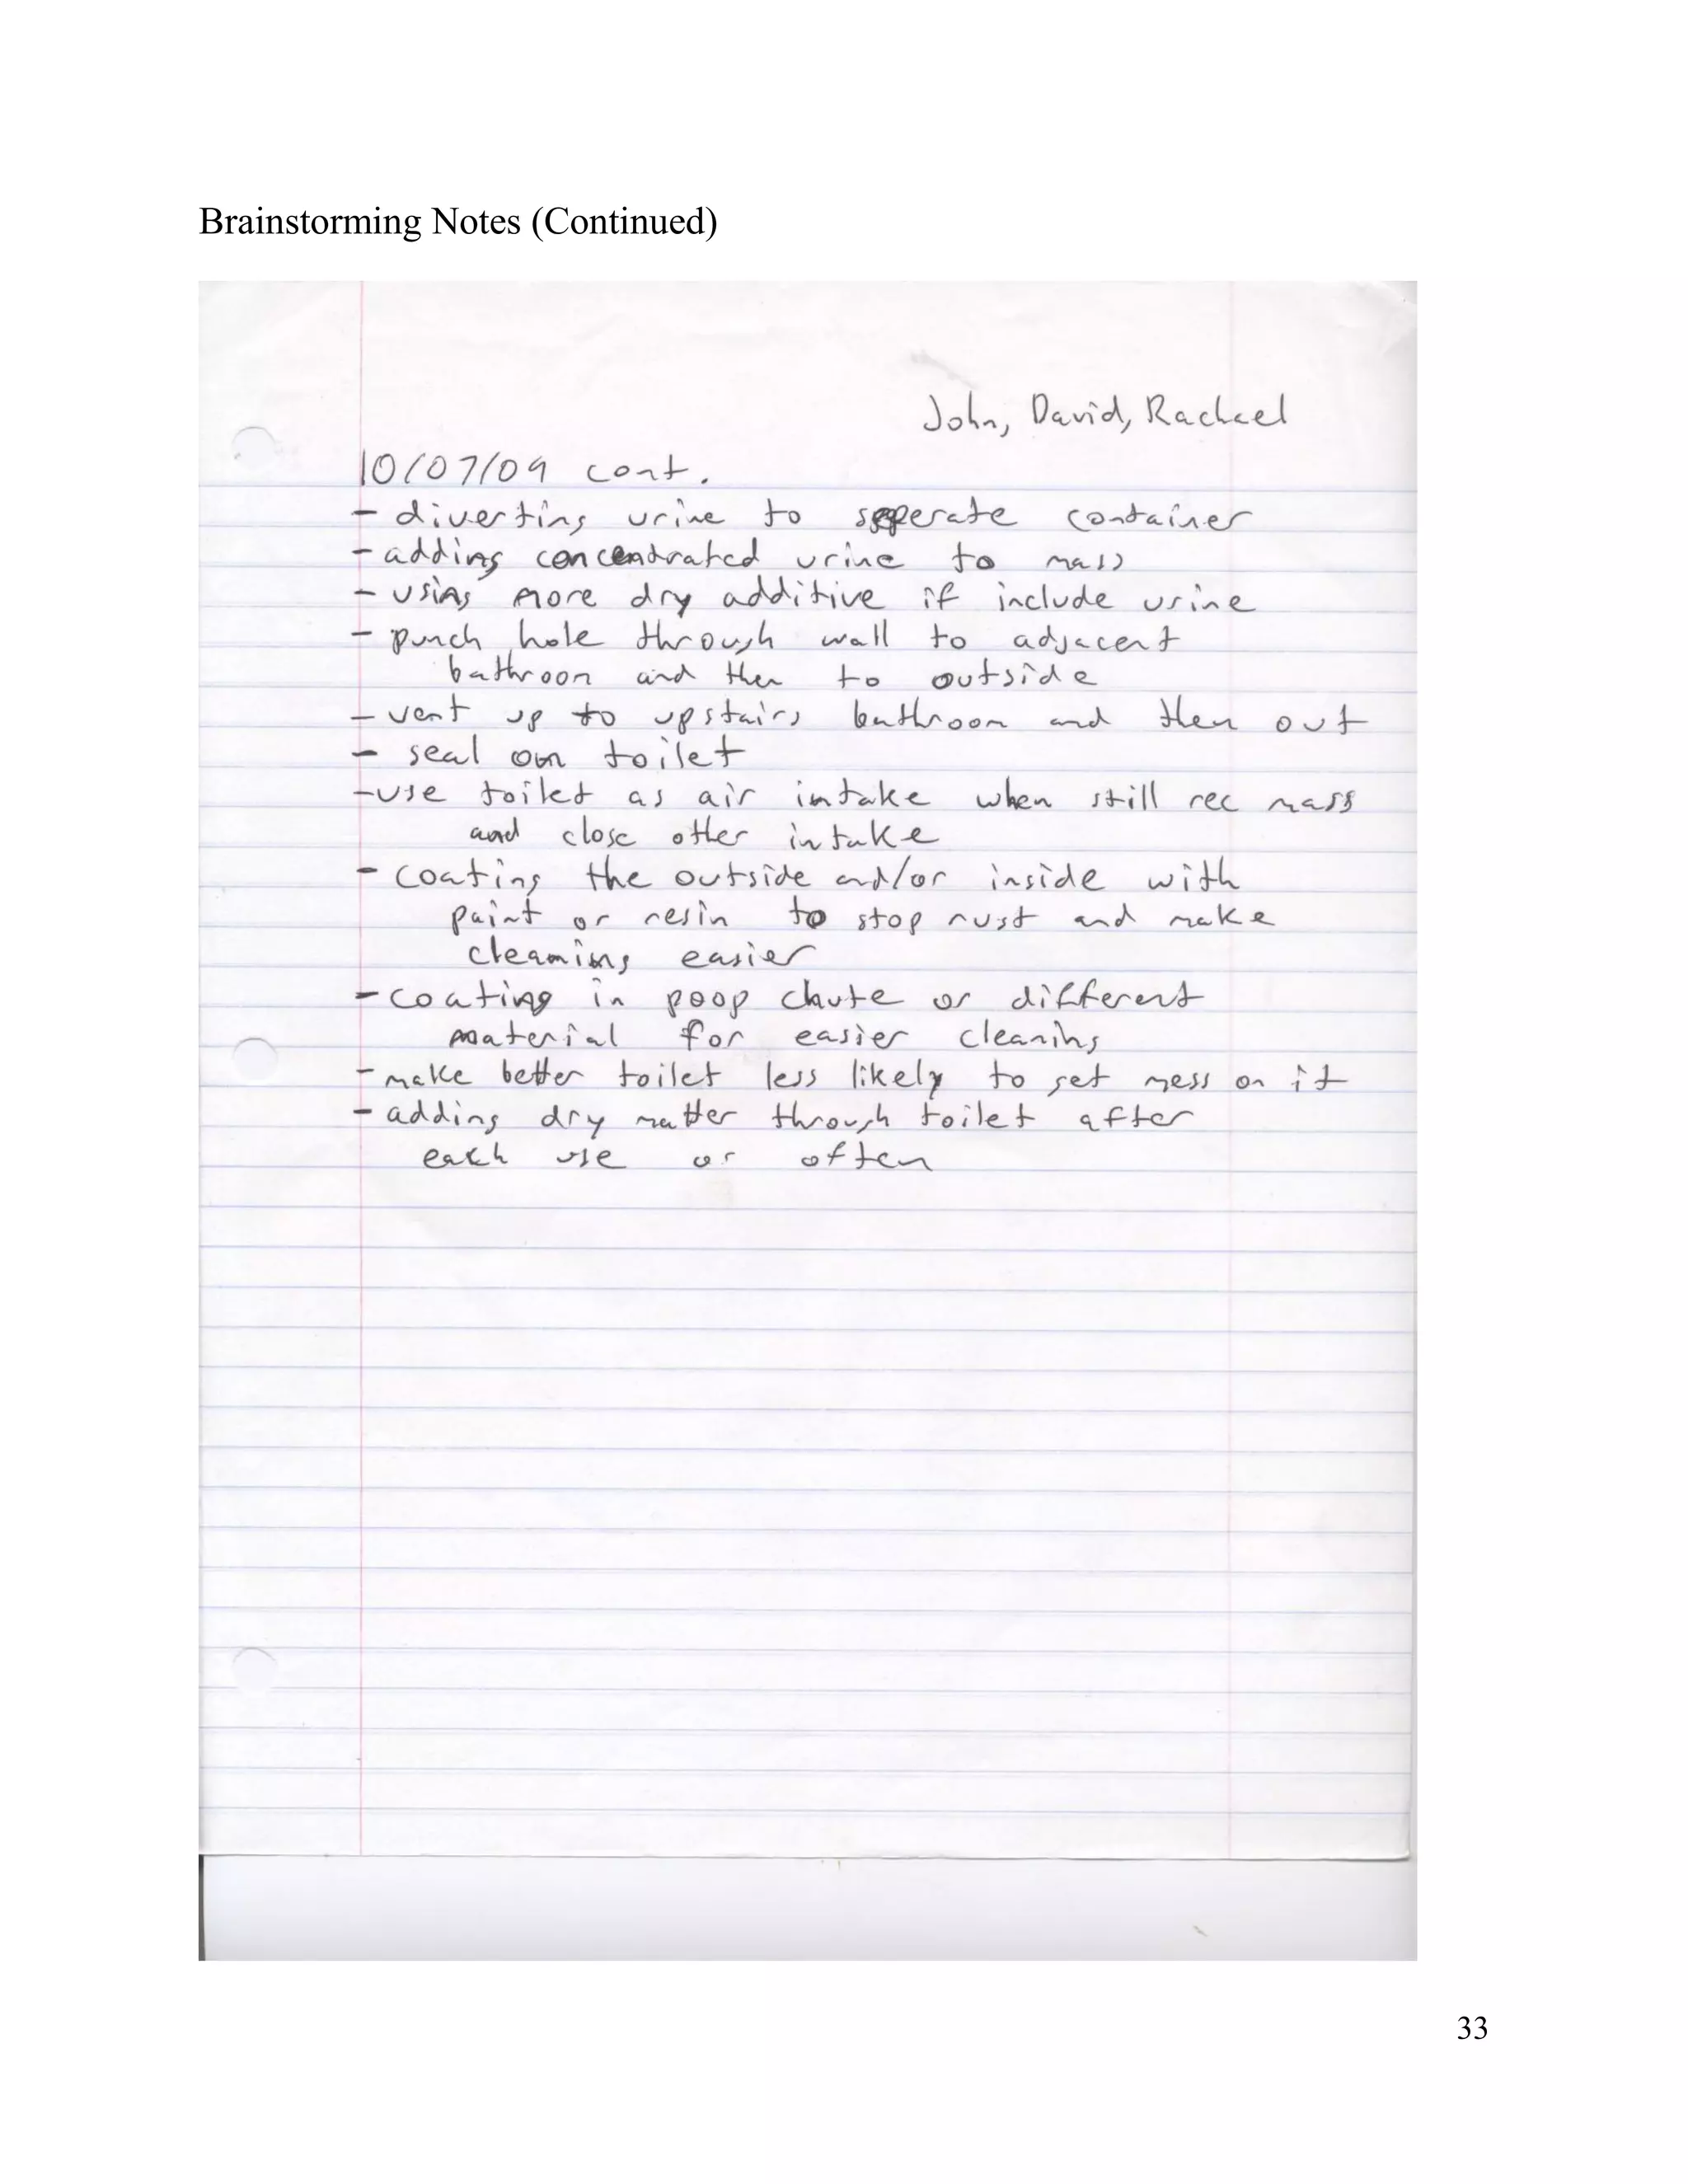 Brainstorming Notes (Continued)
John, David, Rachael
10/07/09 cont.
- diverting urine to seperate container
- adding concentrated urine to mass
- using more dry additive if include urine
- punch hole through wall to adjacent
bathroom and then to outside
- vent up to upstairs bathroom and then out
- seal on toilet
- use toilet as air intake when still rec mass
and close other intake
- coating the outside and/or inside with
paint or resin to stop rust and make
cleaning easier
- coating in poop chute or different
material for easier cleaning
- make better toilet less likely to get mess on it
- adding dry matter through toilet after
each use or often
33